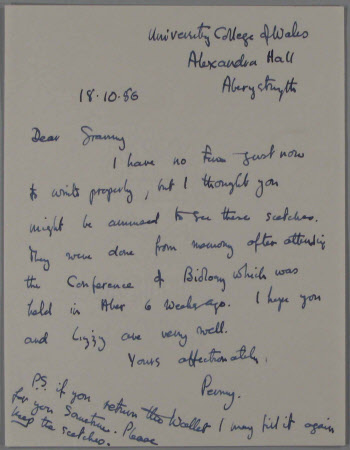 University College of Wales
Alexandra Hall
Aberystwyth
18.10.56
Dear Granny
I have no time just now
to write properly, but I thought you
might be amused to see these scetches.
They were done from memory after attending
the Conference of Biology which was
held in Aber 6 weeks ago. I hope you
and Lizzy are very well.
Yours affectionately,
Penny.
P.S. if you return the Wallet I may fill it again
for you sometime. Please
keep the scetches.